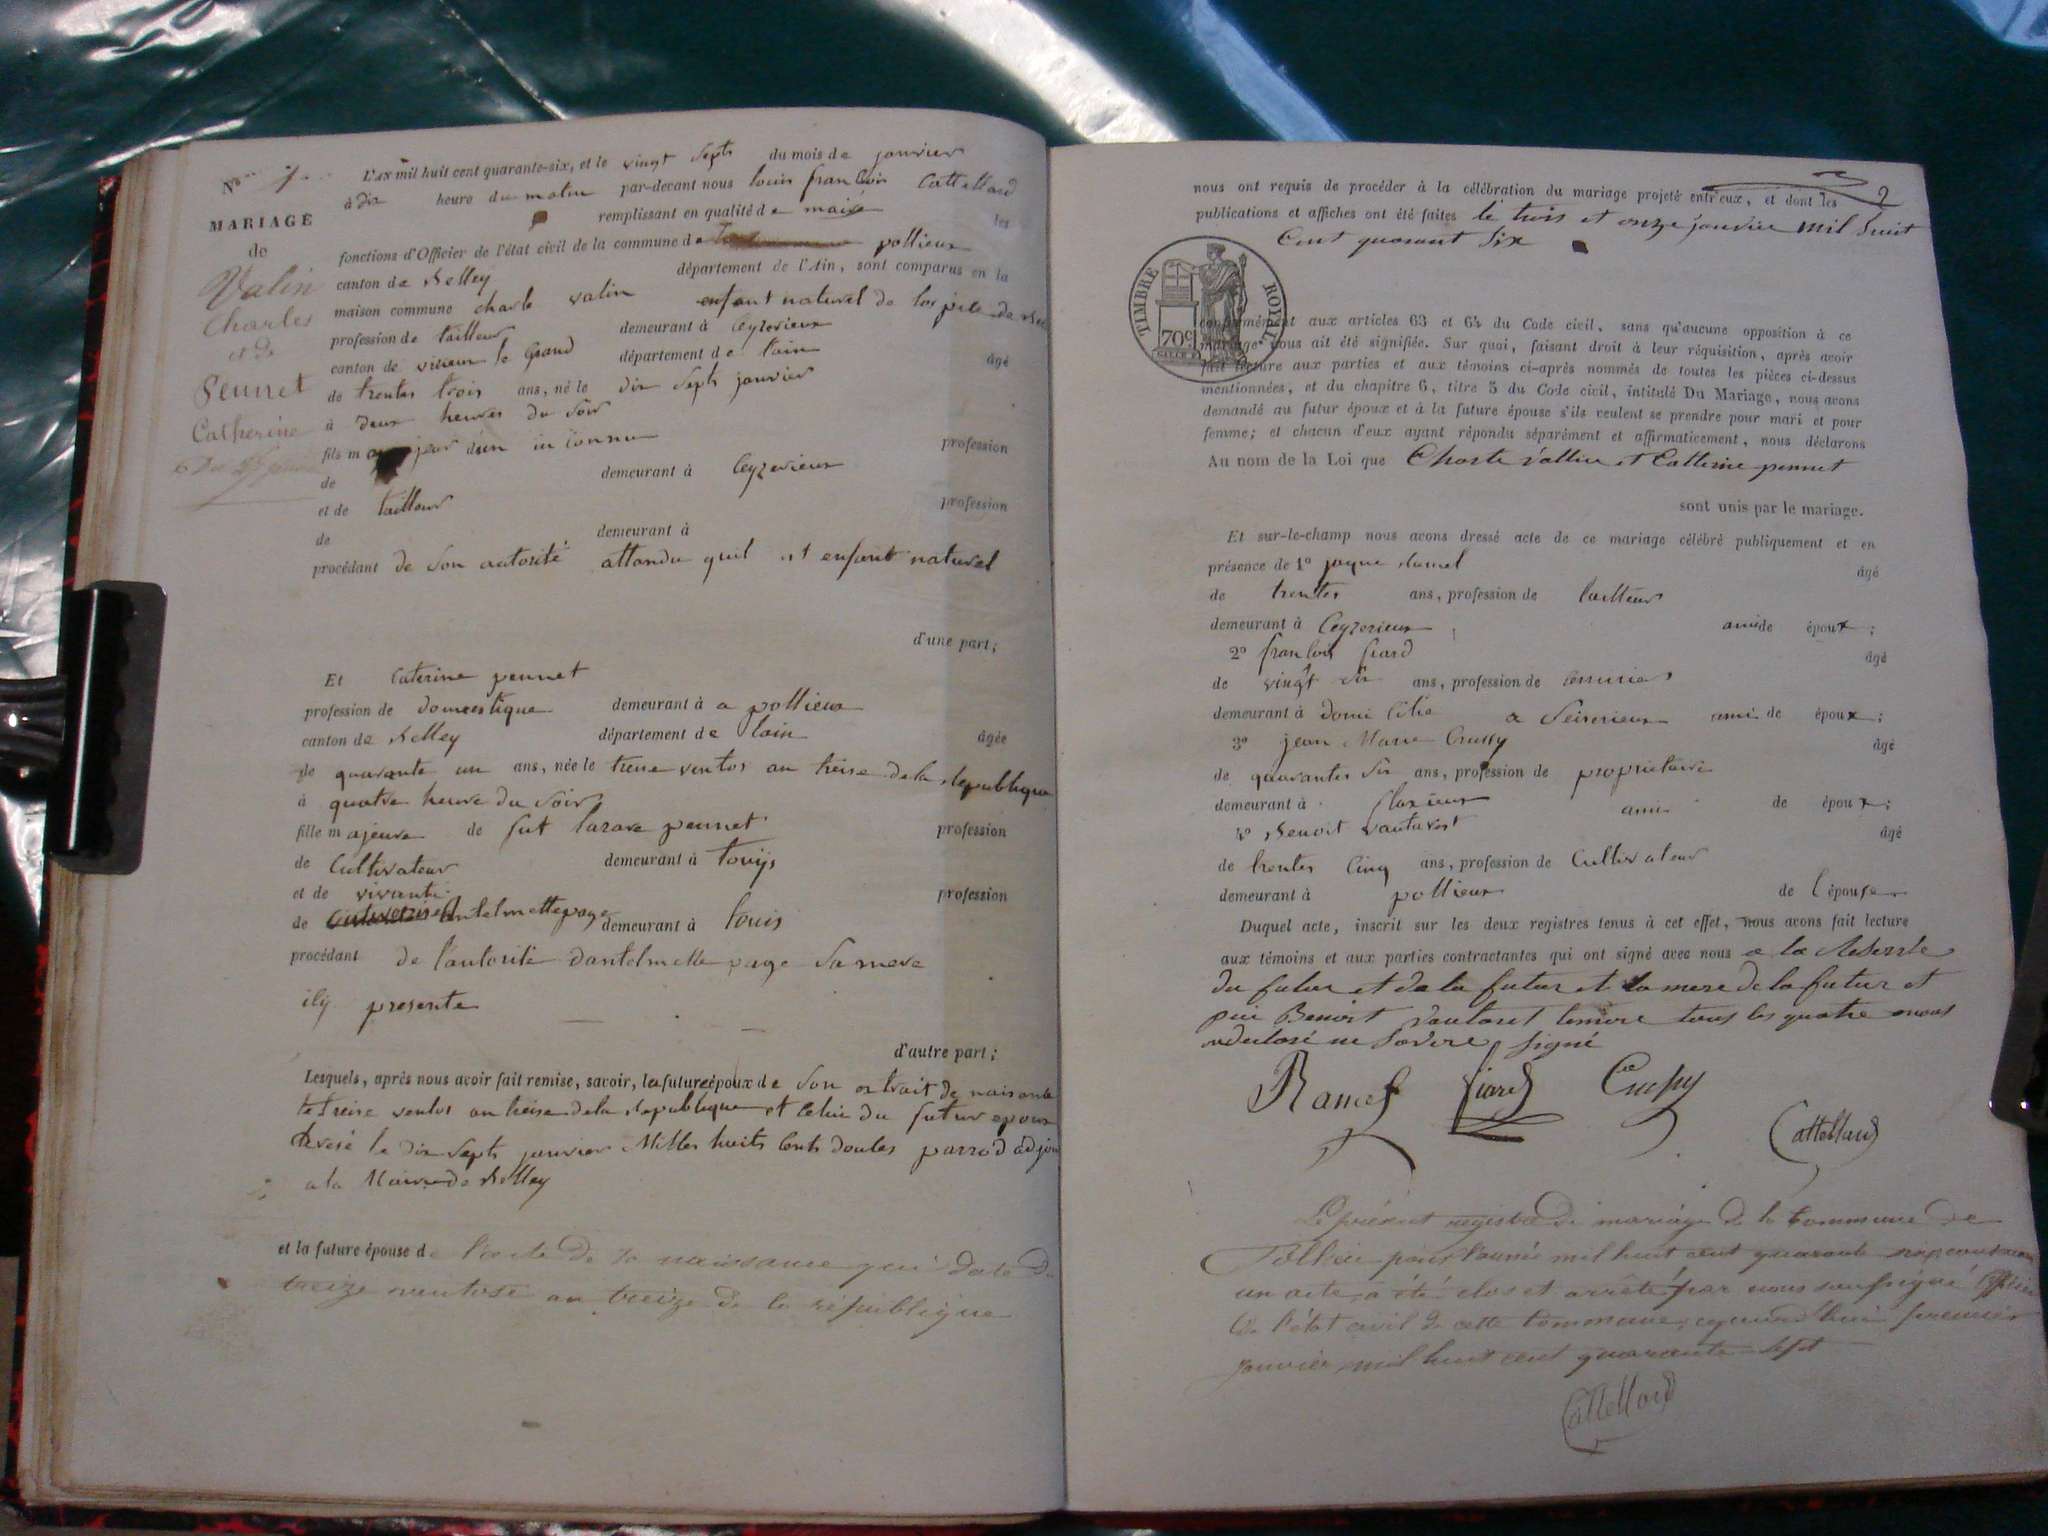 N° 1
MARIAGE
de
Valin
Charles
et de
Pennet
Catherine
L'an mil huit cent quarante-six, et le vingt septs du mois de janvier
à dix heure du matin par-devant nous louis francois Cattelland
remplissant en qualité de maire les
fonctions d'Officier de l'état civil de la commune de pollieux
canton de Belley département de l'Ain, sont comparus en la
maison commune charle valin enfant naturel de
profession de tailleur demeurant à Ceyzerieux
canton de virieux le Grand département de lain âgé
de trentes trois ans, né le dix septs janvier
à deux heures du soir
fils majeur d'un in connu profession
de demeurant à Ceyzerieux
et de tailleur profession
de demeurant à
procédant de son autorité attandu quil est enfant naturel
d'une part;
Et Caterine pennet
profession de domestique demeurant à a pollieux
canton de Belley département de lain âgée
de quarante un ans, née le treise ventos an treise de la Republique
à quatre heure du soir
fille majeure de fut lazare pennet profession
de Cultivateur demeurant à
et de vivante profession
de antelmette page demeurant à
procédant de lautorité dantelmette page sa mere
ily presente
d'autre part;
Lesquels, après nous avoir fait remise, savoir, le futur époux de son extrait de naisance
le treise ventos an treise de la Republique et celui du futur epoux
le dix septs janvier Milles huits Cents doutes adjoin
a la Mairie de Belley
et la future épouse de l'acte de sa naissance qui date du
treize ventose an treize de la république
2
nous ont requis de procéder à la célébration du mariage projeté entr'eux, et dont les
publications et affiches ont été faites le trois et onze janvier mil huit
Cent quarant Six
TIMBRE ROYAL
70c
conformément aux articles 63 et 64 du Code civil, sans qu'aucune opposition à ce
mariage nous ait été signifiée. Sur quoi, faisant droit à leur réquisition, après avoir
fait lecture aux parties et aux témoins ci-après nommés de toutes les pièces ci-dessus
mentionnées, et du chapitre 6, titre 5 du Code civil, intitulé Du Mariage, nous avons
demandé au futur époux et à la future épouse s'ils veulent se prendre pour mari et pour
femme; et chacun d'eux ayant répondu séparément et affirmativement, nous déclarons
Au nom de la Loi que Charle vallin et Catterine pennet
sont unis par le mariage.
Et sur-le-champ nous avons dressé acte de ce mariage célébré publiquement et en
présence de 1° jaque âgé
de trentes ans, profession de tailleur
demeurant à Ceyzerieux ami de époux;
2° francois âgé
de vingt six ans, profession de
demeurant à domi cilié a ami de époux;
3° jean Marie Crussy âgé
de quarantes six ans, profession de propriétaire
demeurant à flaxieux ami de époux;
4° Benoit vautaret âgé
de trentes Cinq ans, profession de Cultivateur
demeurant à pollieux de l'épouse
Duquel acte, inscrit sur les deux registres tenus à cet effet, nous avons fait lecture
aux témoins et aux parties contractantes qui ont signé avec nous a la Reserve
du futur et de la futur et la mere de la futur et
Benoist vautaret temoin tous les quatre
ne savoir signé
Ramel Crussy
Cattelland
Le présent registre de mariage de la Commune de
Pollieu pour l'année mil huit cent quarante six contenant
un acte a été clos et arrêté par nous soussigné officier
de l'état civil de cette Commune, aujourd'hui premier
janvier mil huit cent quarante sept
Cattelland